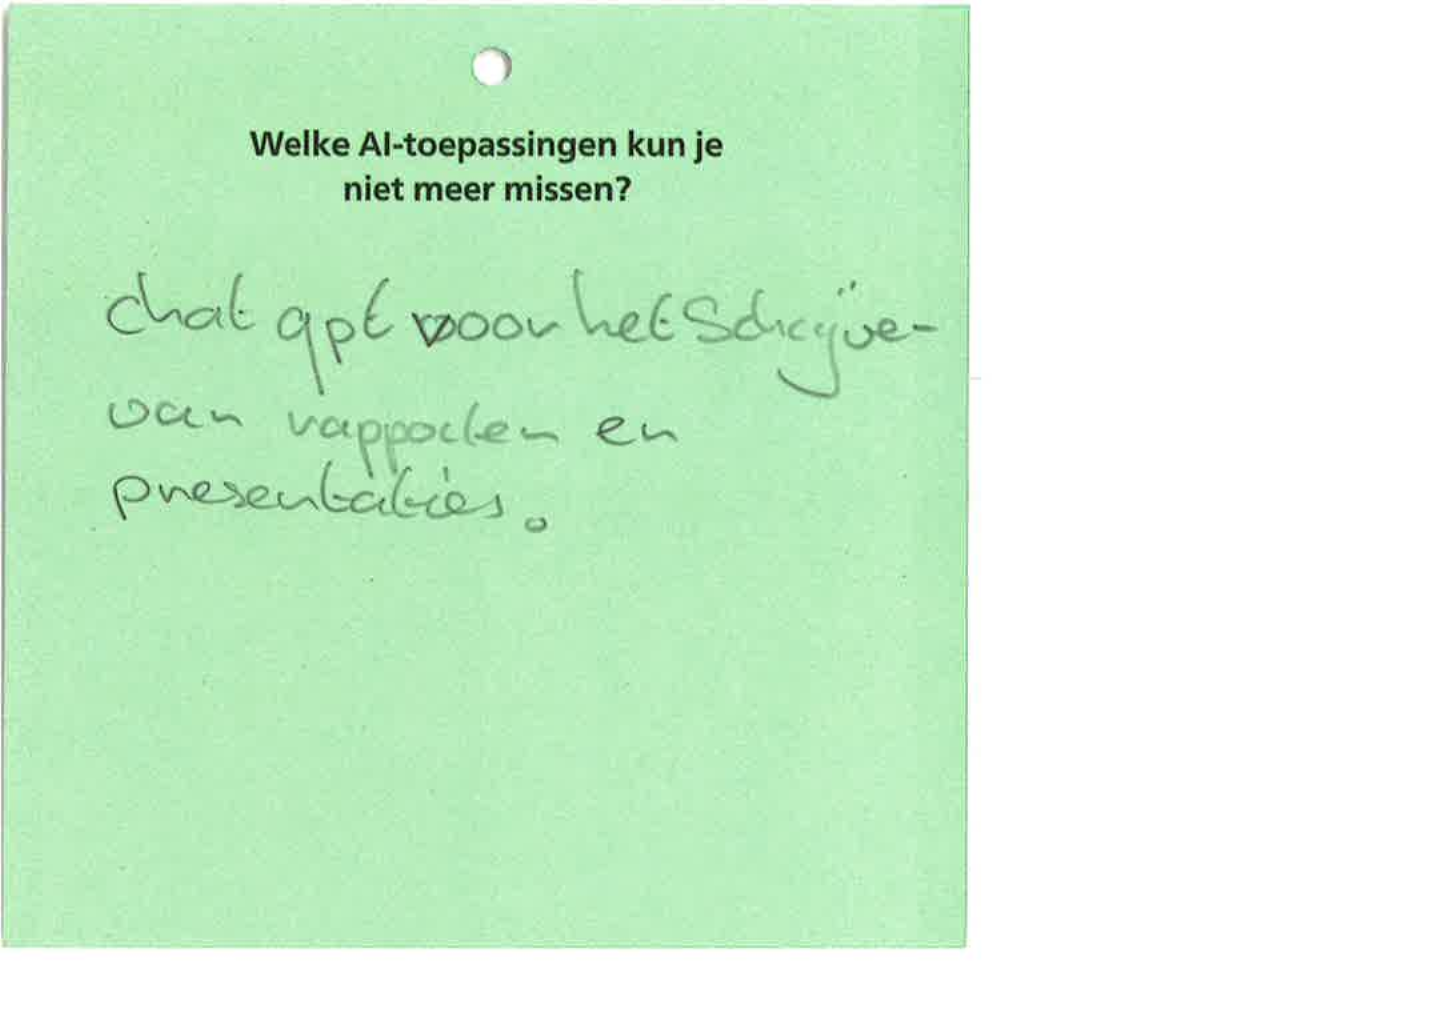 Welke AI-toepassingen kun je
niet meer missen?
chat gpt voor het Schrijve-
van rapporten en
presentaties.